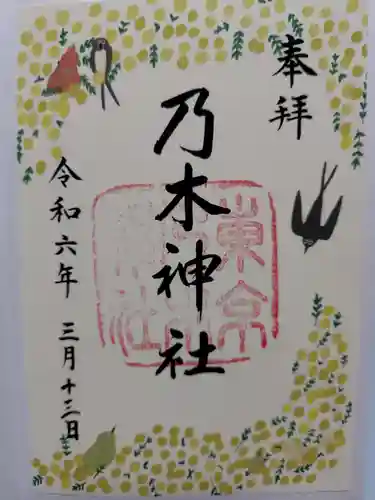 奉拝
乃木神社
東京乃木神社
令和六年 三月十三日